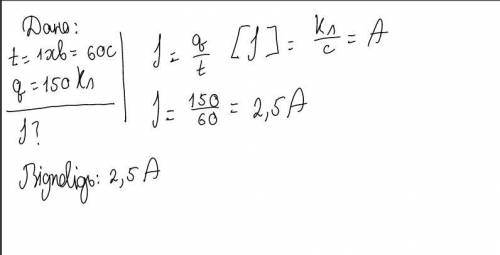 Дано:
t = 1хв = 60с
q = 150 Кл
J?
J = q/t [J] = Кл/с = А
J = 150/60 = 2,5 А
Відповідь: 2,5 А